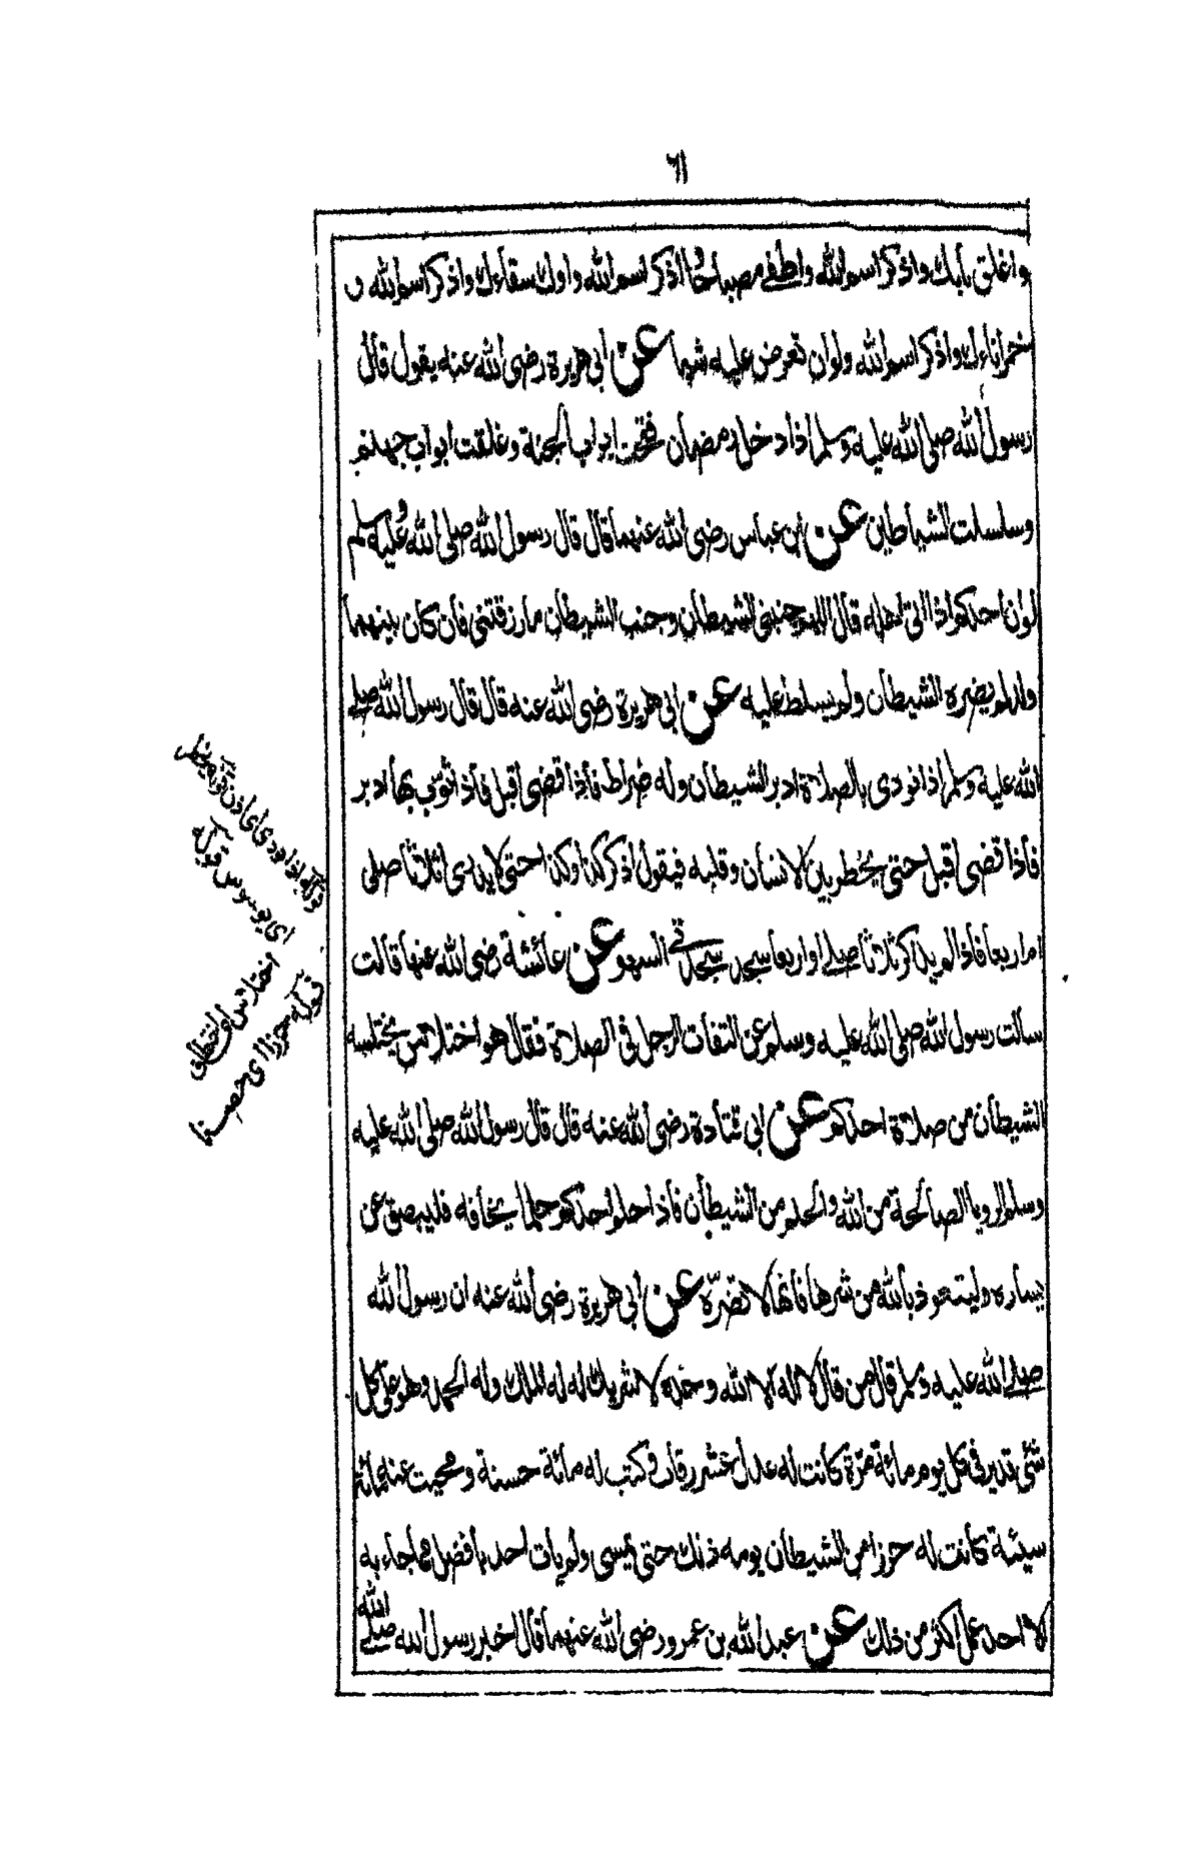 ٦١
واغلق بابك واذكر اسم الله واطفئ مصباحك اذكر اسم الله واوك سقاءك واذكر اسم الله و
خمر اناءك واذكر اسم الله ولو ان تعرض عليه شيئا عن ابي هريرة رضى الله عنه يقول قال
رسول الله صلى الله عليه وسلم اذا دخل رمضان فتحت ابواب الجنة وغلقت ابواب جهنم
وسلسلت الشياطين عن ابن عباس رضى الله عنهما قال قال رسول الله صلى الله عليه وسلم
لو ان احدكم اذا اتى اهله قال اللهم جنبنى الشيطان وجنب الشيطان ما رزقتنى فان كان بينهما
ولد لم يضره الشيطان ولم يسلط عليه عن ابي هريرة رضى الله عنه قال قال رسول الله صلى
الله عليه وسلم اذا نودى بالصلاة ادبر الشيطان وله ضراط فاذا قضى اقبل فاذا ثوب بها ادبر
فاذا قضى اقبل حتى يخطر بين الانسان وقلبه فيقول اذكر كذا وكذا حتى لا يدرى اثلاثا صلى
ام اربعا فاذا لم يدر اثلاثا صلى او اربعا سجد سجدتى السهو عن عائشة رضى الله عنها قالت
سالت رسول الله صلى الله عليه وسلم عن التفات الرجل فى الصلاة فقال هو اختلاس يختلسه
الشيطان من صلاة احدكم عن ابي قتادة رضى الله عنه قال قال رسول الله صلى الله عليه
وسلم الرويا الصالحة من الله والحلم من الشيطان فاذا حلم احدكم حلما يخافه فليبصق عن
يساره وليتعوذ بالله من شرها فانها لا تضره عن ابي هريرة رضى الله عنه ان رسول الله
صلى الله عليه وسلم قال من قال لا اله الا الله وحده لا شريك له له الملك وله الحمد وهو على كل
شئ قدير فى كل يوم مائة مرة كانت له عدل عشر رقاب وكتب له مائة حسنة ومحيت عنه مائة
سيئة كانت له حرزا من الشيطان يومه ذلك حتى يمسى ولم يات احد بافضل مما جاء به
الا احد عمل اكثر من ذلك عن عبد الله بن عمرو رضى الله عنهما قال اخبر رسول الله صلى الله
قوله اذا نودى اى اذن قوله
اى يوسوس قوله
اختلاس اى اختطاف
قوله حرزا اى حصنا